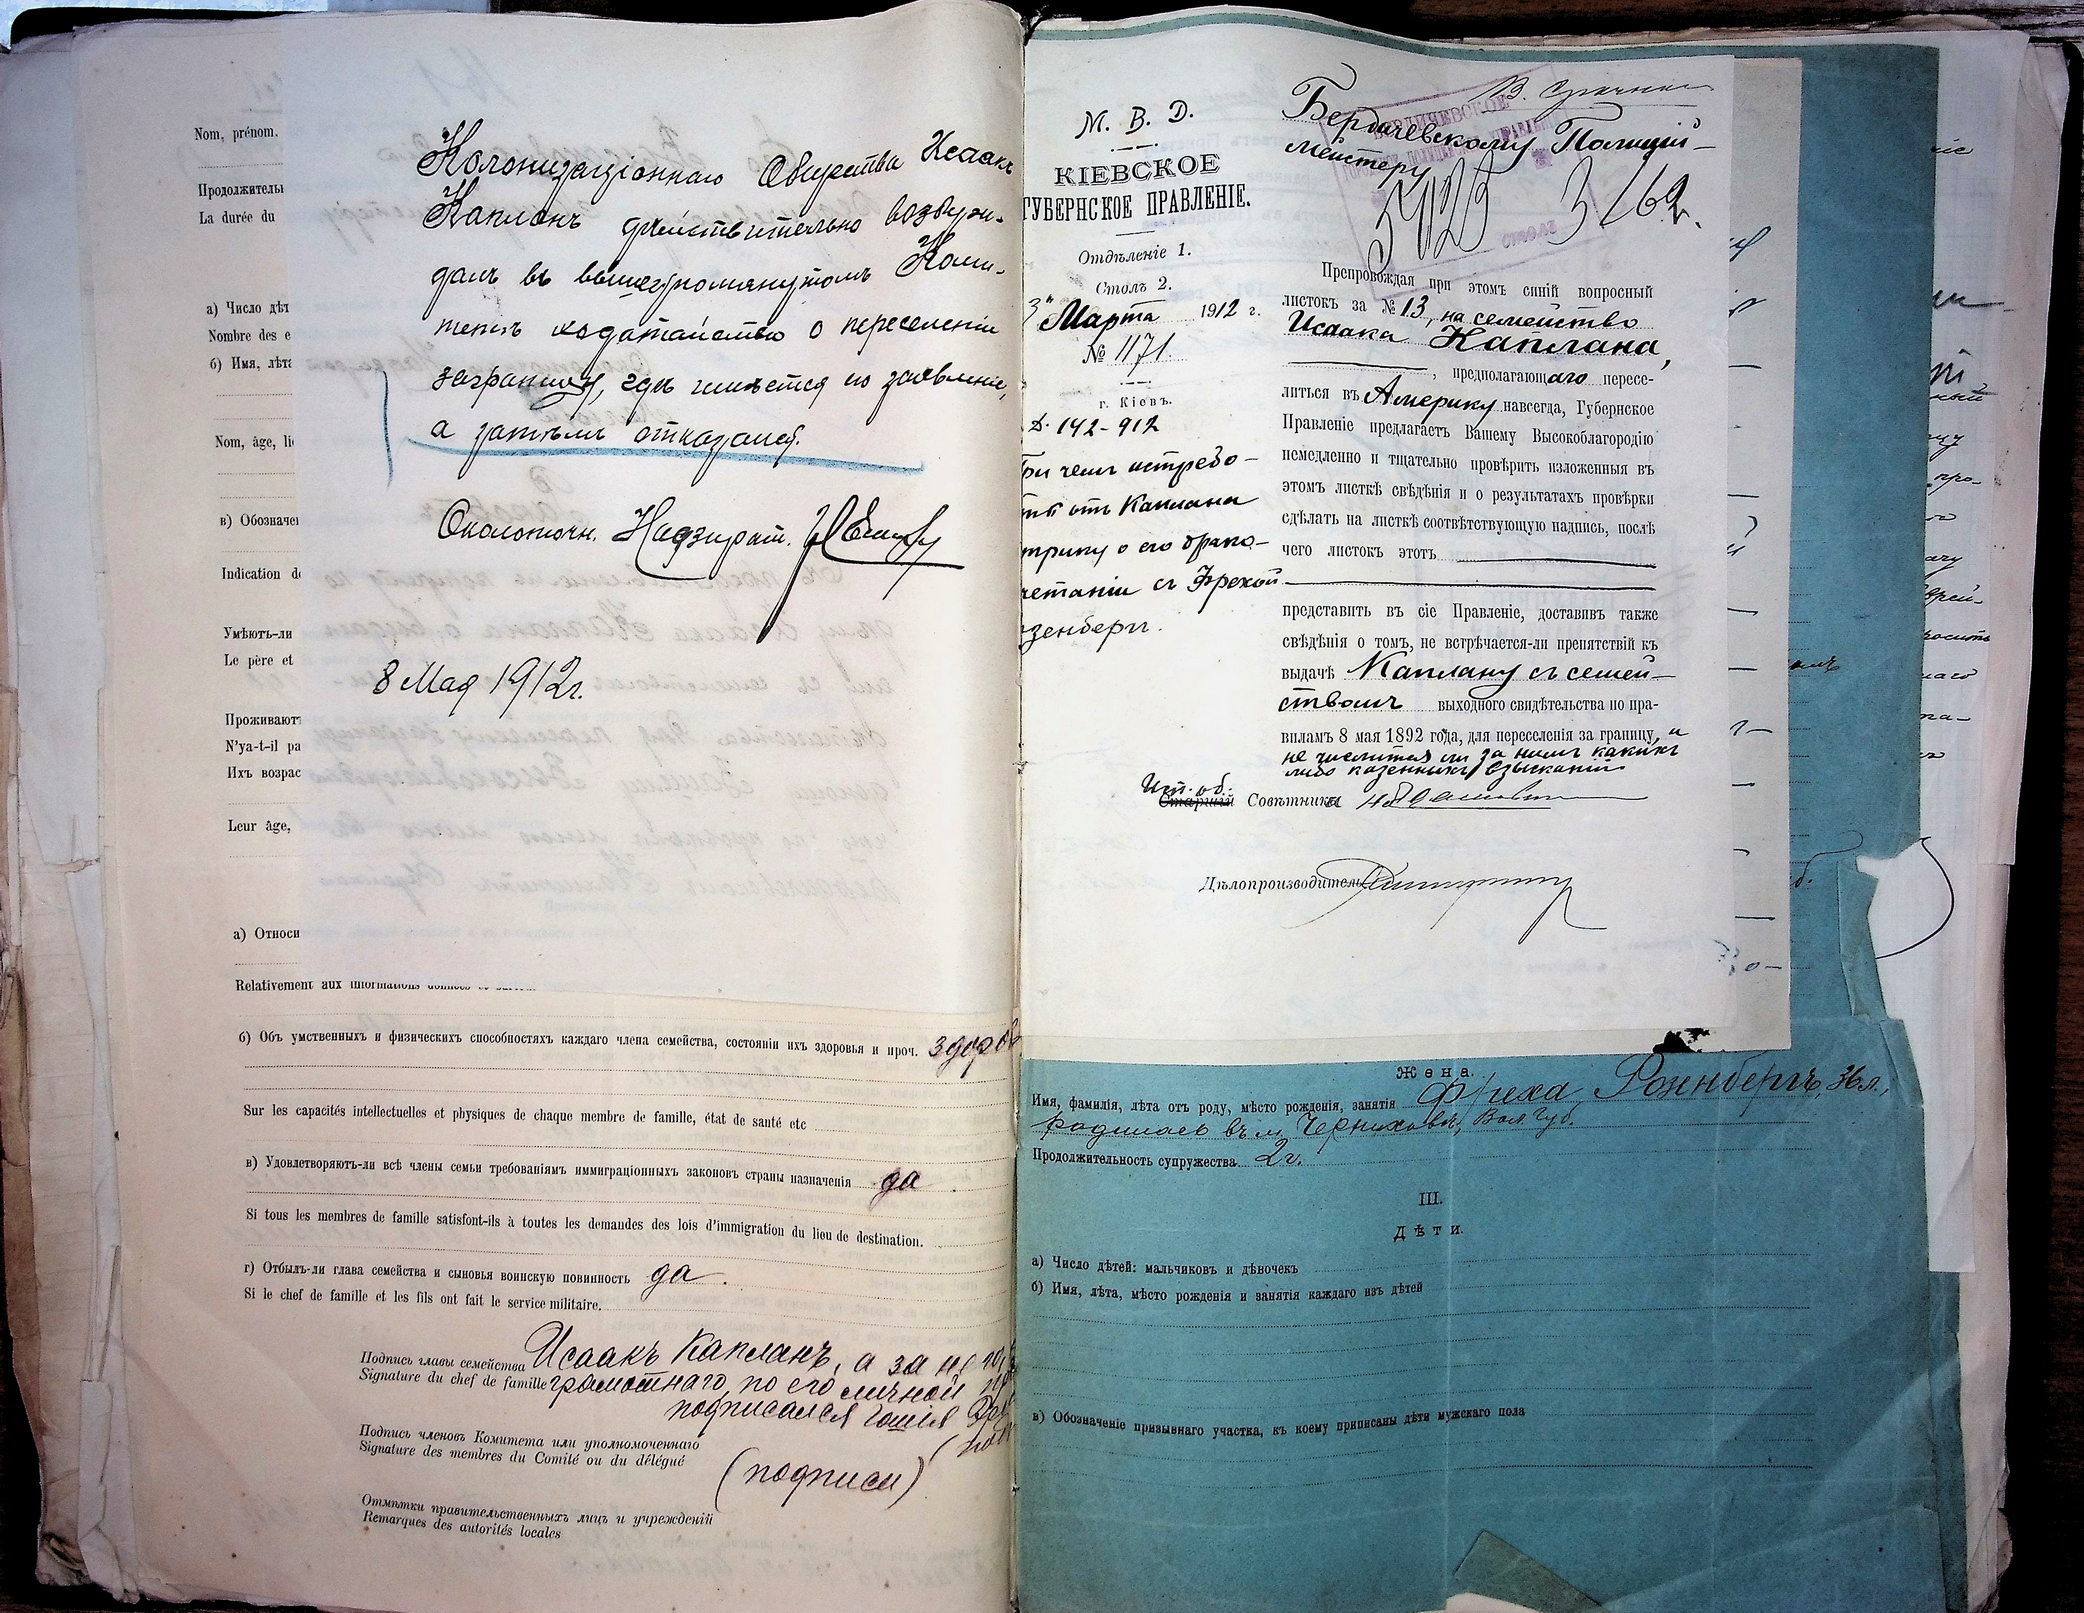 Nom, prénom.
Продолжитель
La durée du
а) Число дѣт
Nombre des e
б) Имя, лѣта
Nom, âge, lie
в) Обозначен
Indication de
Умѣютъ-ли
Le père et
Проживаютъ
N'ya-t-il pa
Ихъ возрас
Leur âge,
а) Относи
Relativement aux informations données
Колонизаціоннаго Общества Исаакъ
Капланъ дѣйствительно возбуж-
далъ въ вышеупомянутомъ Коми-
тетѣ ходатайство о переселеніи
заграницу, гдѣ имѣется но заявленіе,
а затѣмъ отказался.
Околоточн. Надзират.
8 Мая 1912 г.
б) Объ умственныхъ и физическихъ способностяхъ каждаго члена семейства, состояніи ихъ здоровья и проч. здоров
Sur les capacités intellectuelles et physiques de chaque membre de famille, état de santé etc
в) Удовлетворяютъ-ли всѣ члены семьи требованіямъ иммиграціонныхъ законовъ страны назначенія да
Si tous les membres de famille satisfont-ils à toutes les demandes des lois d'immigration du lieu de destination.
г) Отбылъ-ли глава семейства и сыновья воинскую повинность да.
Si le chef de famille et les fils ont fait le service militaire.
Подпись главы семейства Исаакъ Капланъ, а за не
Signature du chef de famille грамотнаго по его личной
подписался
Подпись членовъ Комитета или уполномоченнаго
Signature des membres du Comité ou du délégué
(подписи)
Отмѣтки правительственныхъ лицъ и учрежденій
Remarques des autorités locales
М. В. Д.
КІЕВСКОЕ
ГУБЕРНСКОЕ ПРАВЛЕНІЕ.
Отдѣленіе 1.
Столъ 2.
3" Марта 1912 г.
№ 1171.
г. Кіевъ.
Д. 142-912
При чемъ истребо-
отъ Каплана
о его брако-
четаніи съ Фрехой
зенбергъ.
В. Срочно
Бердичевскому Полицій-
мейстеру
БЕРДИЧЕВСКОЕ
5923 3/62.
Препровождая при этомъ синій вопросный
листокъ за № 13, на семейство
Исаака Каплана,
, предполагающаго пересе-
литься въ Америку навсегда, Губернское
Правленіе предлагаетъ Вашему Высокоблагородію
немедленно и тщательно провѣрить изложенныя въ
этомъ листкѣ свѣдѣнія и о результатахъ провѣрки
сдѣлать на листкѣ соотвѣтствующую надпись, послѣ
чего листокъ этотъ
представить въ сіе Правленіе, доставивъ также
свѣдѣнія о томъ, не встрѣчается-ли препятствій къ
выдачѣ Каплану съ семей-
ствомъ выходного свидѣтельства по пра-
виламъ 8 мая 1892 года, для переселенія за границу, и
не числится ли за нимъ какихъ
либо казенныхъ взысканій
Исп. об.
Старшій Совѣтника
Дѣлопроизводитель
Жена.
Имя, фамилія, лѣта отъ роду, мѣсто рожденія, занятія Фреха Розенбергъ, 36 л.,
родилась въ м. Черняховѣ, Вол. губ.
Продолжительность супружества 2 г.
III.
Дѣти.
а) Число дѣтей: мальчиковъ и дѣвочекъ
б) Имя, лѣта, мѣсто рожденія и занятія каждаго изъ дѣтей
в) Обозначеніе призывнаго участка, къ коему приписаны дѣти мужскаго пола